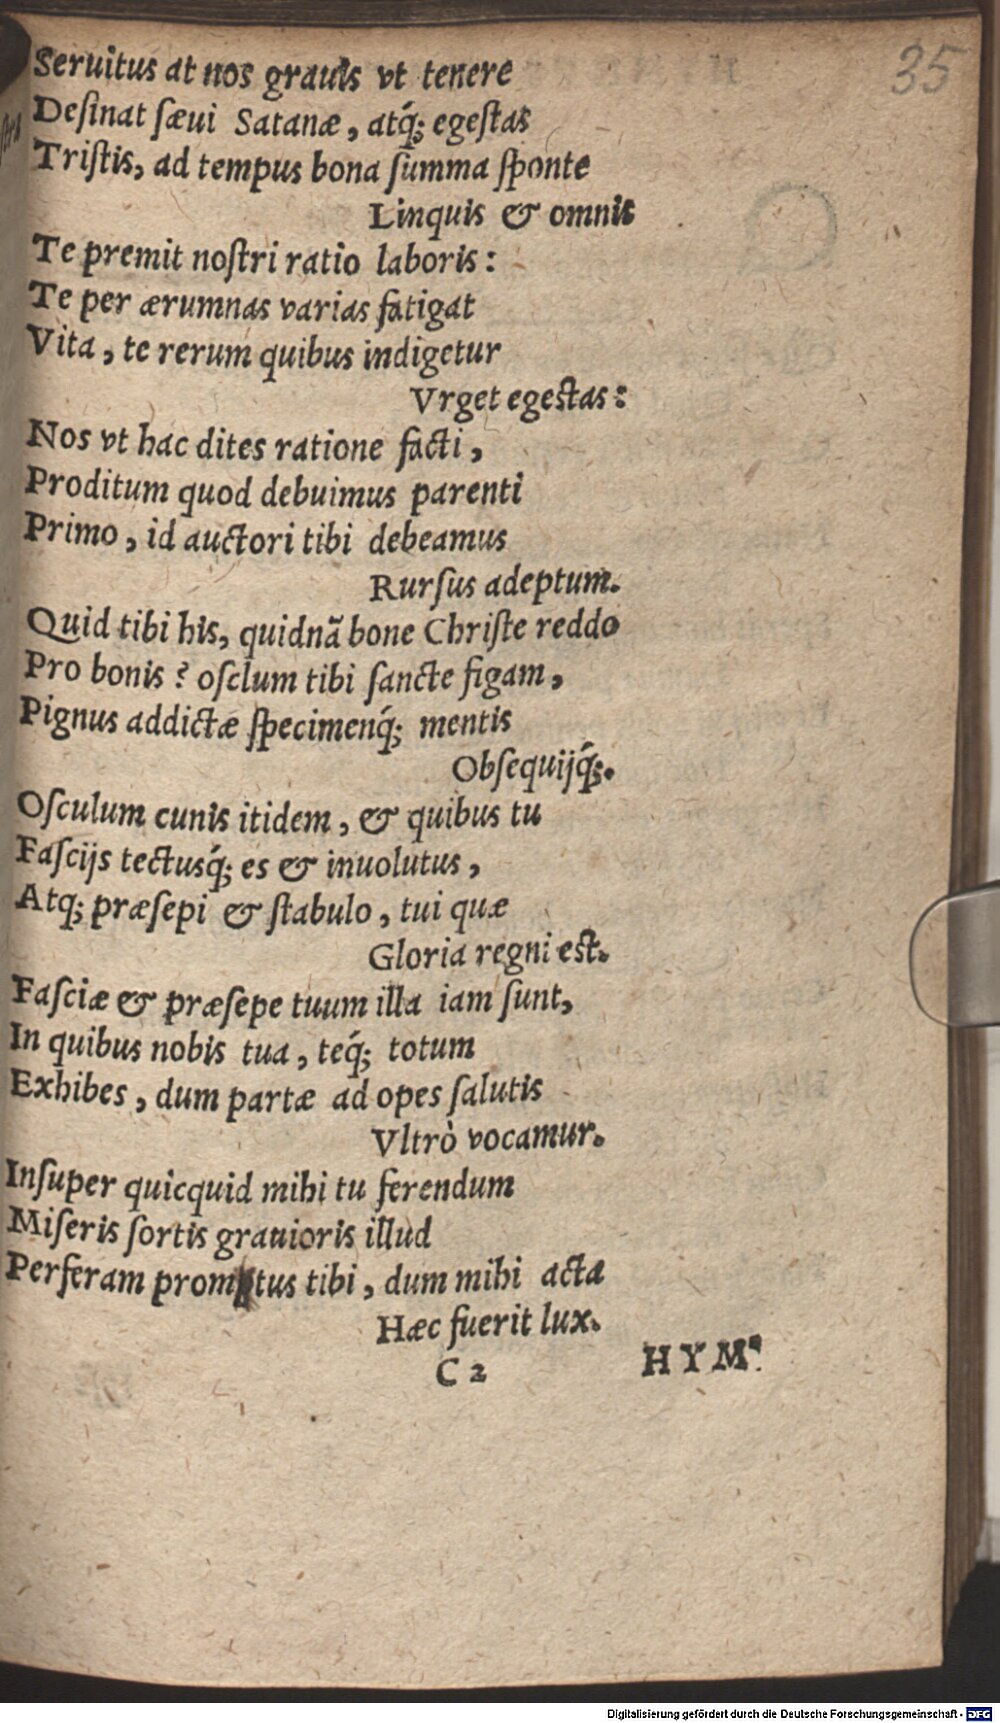 35
Seruitus at nos grauis vt tenere
Deſinat ſæui Satanæ, atq́; egeſtas
Triſtis, ad tempus bona ſumma ſponte
Linquis & omnis
Te premit noſtri ratio laboris:
Te per ærumnas varias fatigat
Vita, te rerum quibus indigetur
Vrget egeſtas:
Nos vt hac dites ratione facti,
Proditum quod debuimus parenti
Primo, id auctori tibi debeamus
Rurſus adeptum.
Quid tibi his, quidnã bone Chriſte reddo
Pro bonis? oſclum tibi ſancte figam,
Pignus addictæ ſpecimenq́; mentis
Obſequijq́;.
Oſculum cunis itidem, & quibus tu
Faſcijs tectusq́; es & inuolutus,
Atq; præſepi & ſtabulo, tui quæ
Gloria regni eſt.
Faſciæ & præſepe tuum illa iam ſunt,
In quibus nobis tua, teq́; totum
Exhibes, dum partæ ad opes ſalutis
Vltrò vocamur.
Inſuper quicquid mihi tu ferendum
Miſeris ſortis grauioris illud
Perferam promptus tibi, dum mihi acta
Hæc fuerit lux.
C 2 HYM-
Digitalisierung gefördert durch die Deutsche Forschungsgemeinschaft - DFG